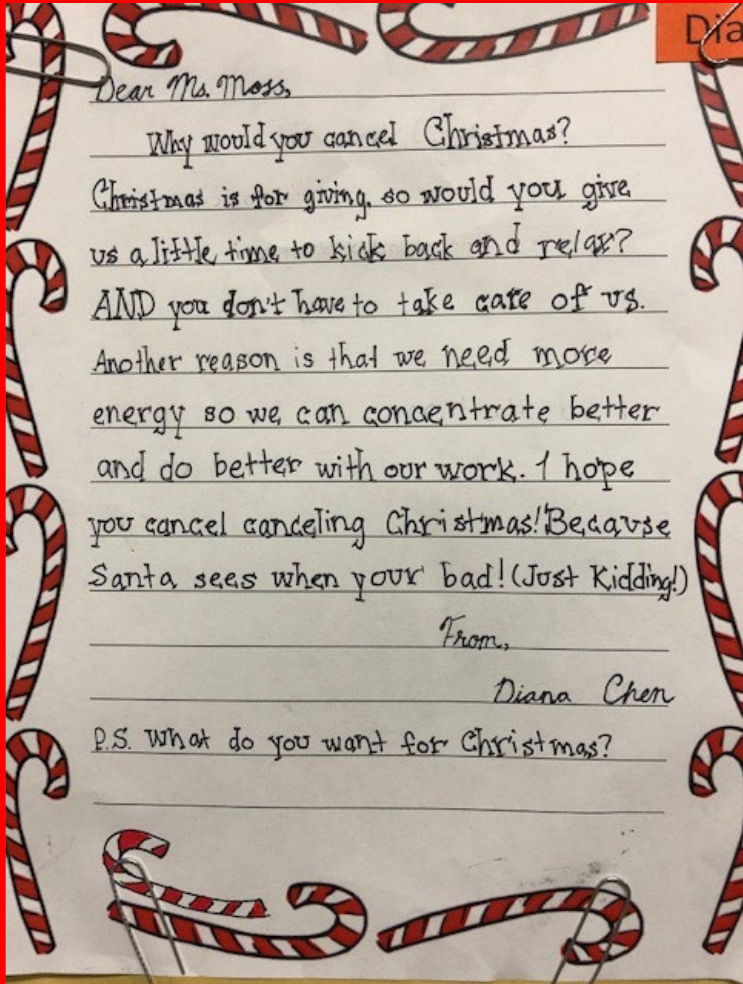 Dia
Dear Ms. Moss,
Why would you cancel Christmas?
Christmas is for giving, so would you give
us a little time to kick back and relax?
AND you don't have to take care of us.
Another reason is that we need more
energy so we can concentrate better
and do better with our work. I hope
you cancel canceling Christmas! Because
Santa sees when your bad! (Just Kidding!)
From,
Diana Chen
P.S. What do you want for Christmas?